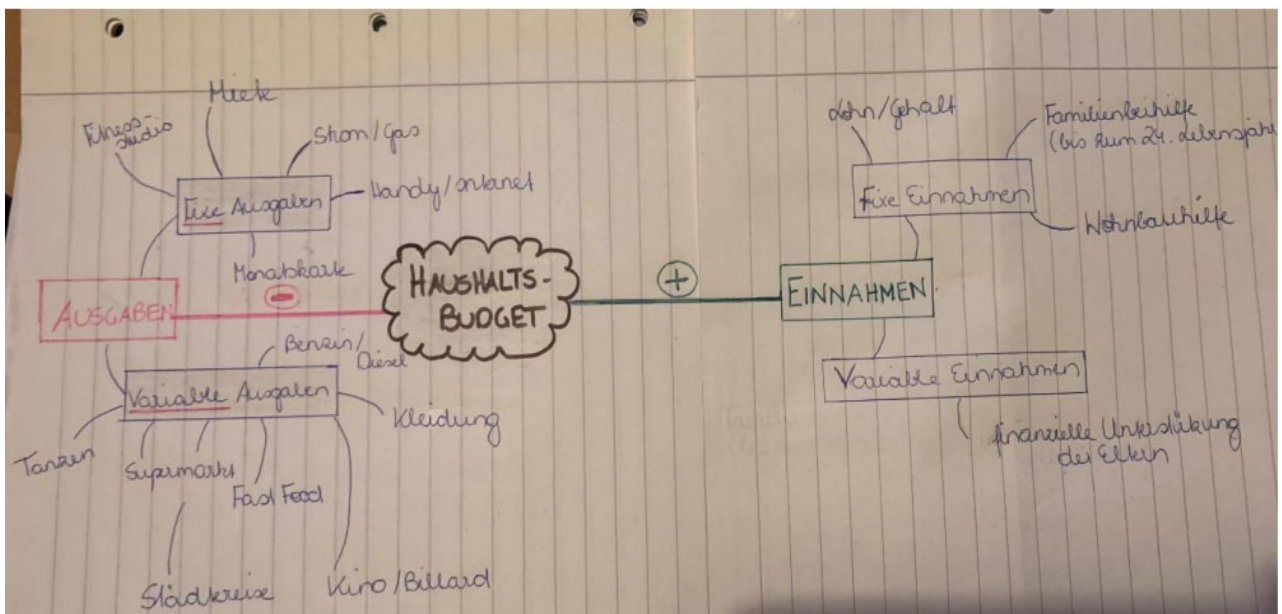 HAUSHALTS-
BUDGET
AUSGABEN
Fixe Ausgaben
Fitness-
studio
Miete
Strom/Gas
Handy/Internet
Monatskarte
Variable Ausgaben
Benzin/
Diesel
Kleidung
Kino/Billard
Fast Food
Supermarkt
Städtereise
Tanzen
+
EINNAHMEN
Fixe Einnahmen
Lohn/Gehalt
Familienbeihilfe
(bis zum 24. Lebensjahr
Wohnbauhilfe
Variable Einnahmen
finanzielle Unterstützung
der Eltern